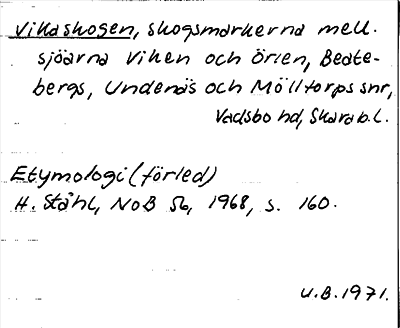 Vikaskogen, skogsmarkerna mell.
sjöarna Viken och Örlen, Beate-
bergs, Undenäs och Mölltorps snr,
Vadsbo hd, Skarab.l.
Etymologi (förled)
H. Ståhl, NoB 56, 1968, s. 160.
U.B. 1971.